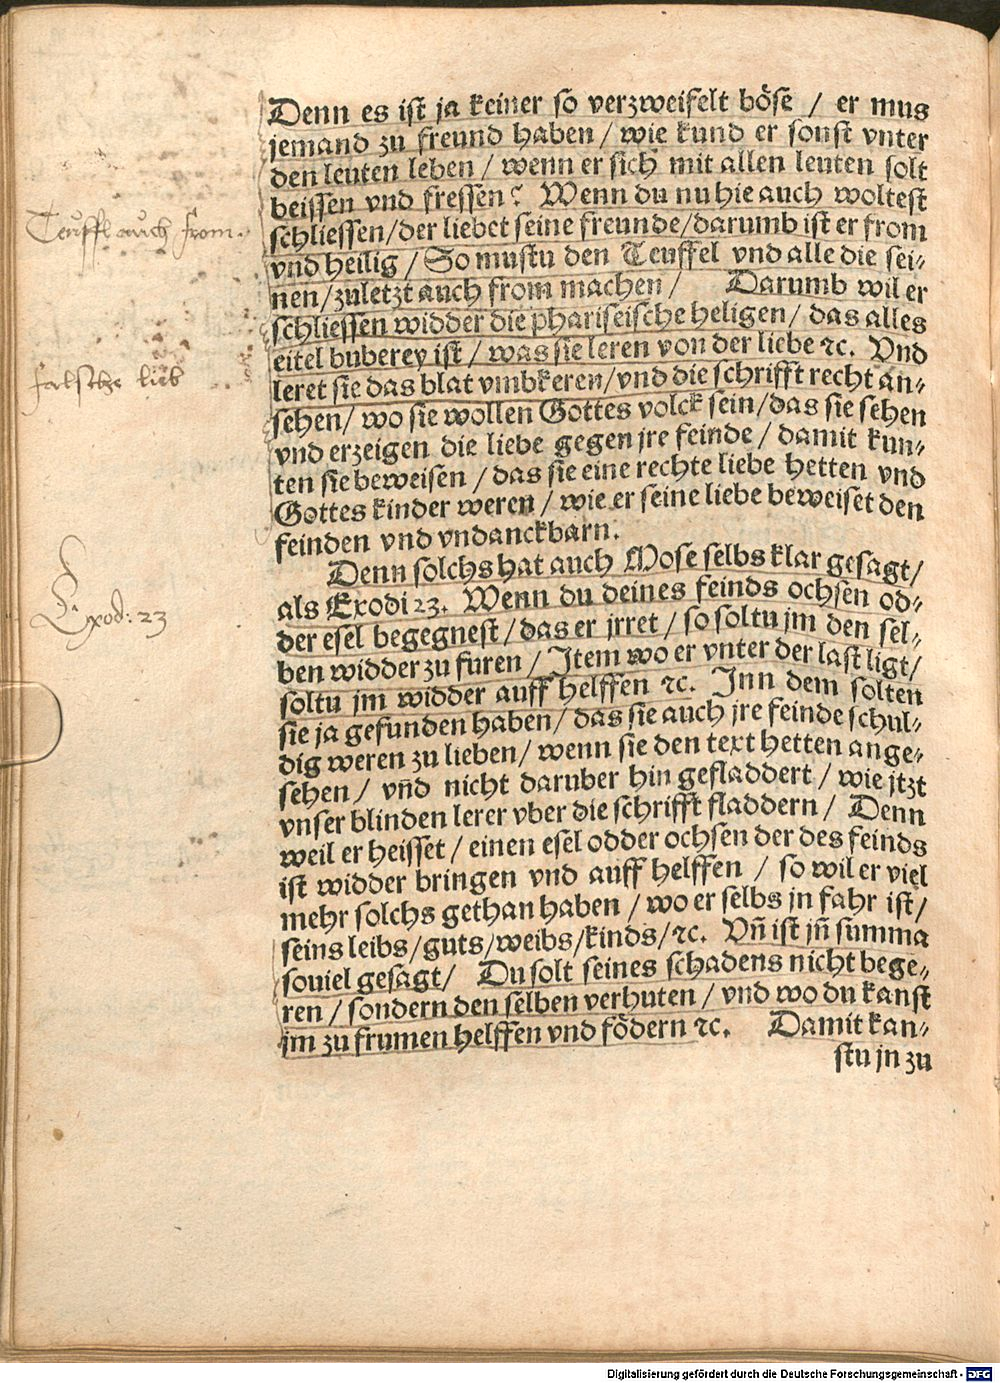 Denn es ist ja keiner so verzweifelt böse / er mus
jemand zu freund haben / wie kund er sonst vnter
den leuten leben / wenn er sich mit allen leuten solt
beissen vnd fressen? Wenn du nu hie auch woltest
Teuffl auch from.
schliessen / der liebet seine freunde / darumb ist er from
vnd heilig / So mustu den Teuffel vnd alle die sei-
nen / zuletzt auch from machen / Darumb wil er
schliessen widder die phariseische heligen / das alles
eitel buberey ist / was sie leren von der liebe ꝛc. Vnd
falsche lieb
leret sie das blat vmbkeren / vnd die schrifft recht an-
sehen / wo sie wollen Gottes volck sein / das sie sehen
vnd erzeigen die liebe gegen jre feinde / damit kun-
ten sie beweisen / das sie eine rechte liebe hetten vnd
Gottes kinder weren / wie er seine liebe beweiset den
feinden vnd vndanckbarn.
Denn solchs hat auch Mose selbs klar gesagt /
Exod: 23
als Exodi 23. Wenn du deines feinds ochsen od-
der esel begegnest / das er jrret / so soltu jm den sel-
ben widder zu furen / Item wo er vnter der last ligt /
soltu jm widder auff helffen ꝛc. Inn dem solten
sie ja gefunden haben / das sie auch jre feinde schul-
dig weren zu lieben / wenn sie den text hetten ange-
sehen / vñd nicht daruber hin gefladdert / wie jtzt
vnser blinden lerer vber die schrifft fladdern / Denn
weil er heisset / einen esel odder ochsen der des feinds
ist widder bringen vnd auff helffen / so wil er viel
mehr solchs gethan haben / wo er selbs jn fahr ist /
seins leibs / guts / weibs / kinds / ꝛc. Vñ ist jñ summa
souiel gesagt / Du solt seines schadens nicht bege-
ren / sondern den selben verhuten / vnd wo du kanst
jm zu frumen helffen vnd födern ꝛc. Damit kan-
stu jn zu
Digitalisierung gefördert durch die Deutsche Forschungsgemeinschaft - DFG